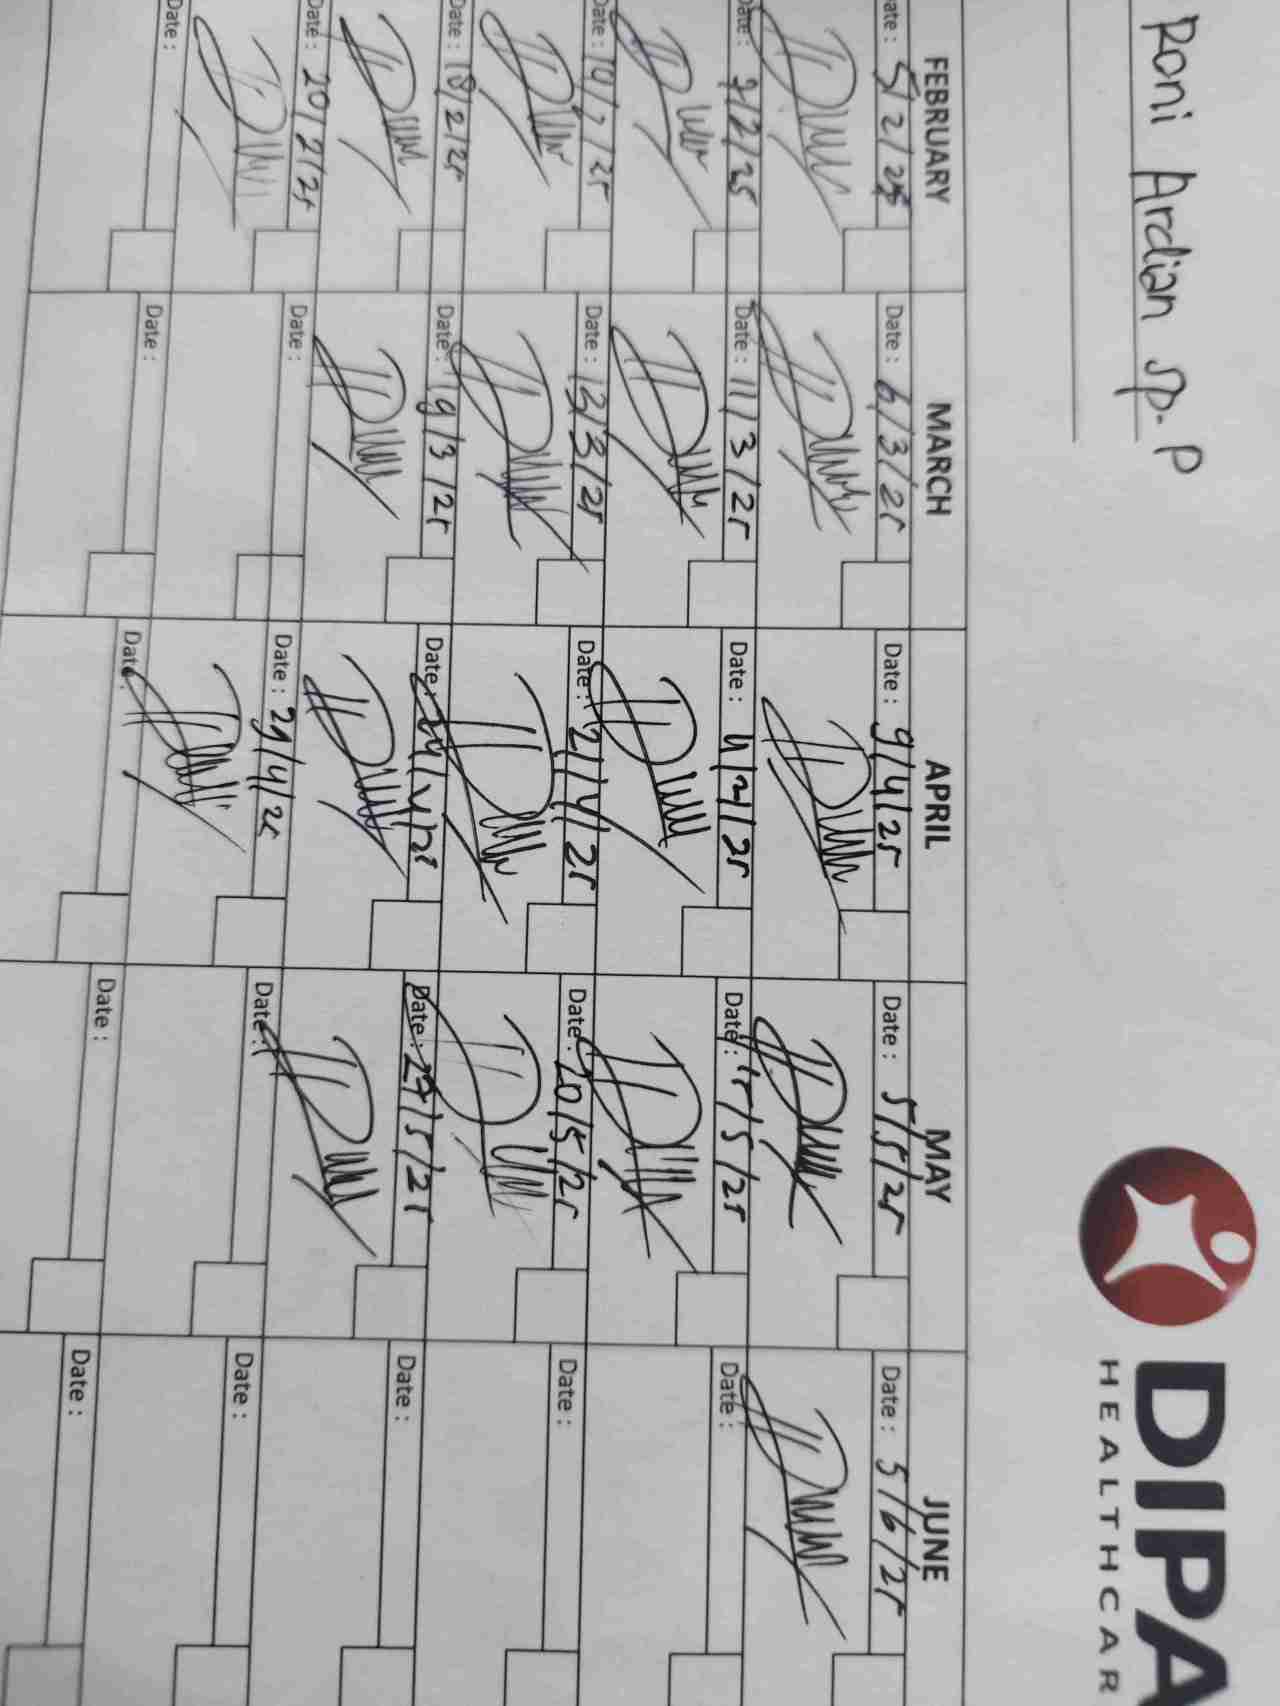 Roni Ardian Sp. P
DIPA
HEALTHCAR
FEBRUARY MARCH APRIL MAY JUNE
ate : 5/2/25 Date : 6/3/25 Date : 9/4/25 Date : 5/5/25 Date : 5/6/25
Date : 7/2/25 Date : 11/3/25 Date : Date : 15/5/25 Date :
Date : 10/2/25 Date : 13/3/25 Date : 21/4/25 Date : 20/5/25 Date :
Date : 18/2/25 Date : 19/3/25 Date : 24/4/25 Date : 27/5/25 Date :
Date : 20/2/25 Date : Date : 29/4/25 Date : Date :
Date : Date : Date : Date : Date :